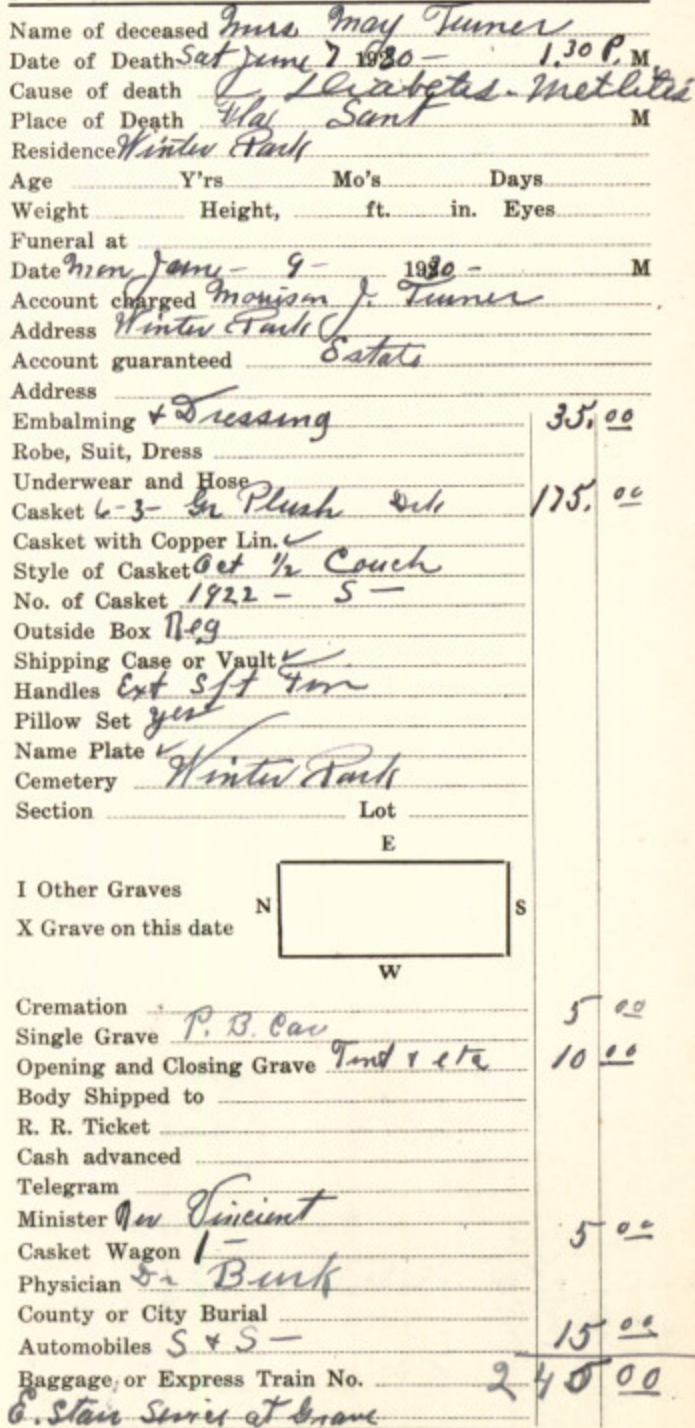 Name of deceased Mrs May Turner
Date of Death Sat June 7 1930 - 1.30 P. M
Cause of death Diabetes - Metlites
Place of Death Fla Sant M
Residence Winter Park
Age Y'rs Mo's Days
Weight Height, ft. in. Eyes
Funeral at
Date Mon June - 9 - 1930 - M
Account charged Morrison J. Turner
Address Winter Park
Account guaranteed Estate
Address
Embalming + Dressing 35.00
Robe, Suit, Dress
Underwear and Hose
Casket 6-3- Gr Plush 175.00
Casket with Copper Lin. ✓
Style of Casket Oct 1/2 Couch
No. of Casket 1922 - S -
Outside Box Reg
Shipping Case or Vault ✓
Handles Ext Sft
Pillow Set yes
Name Plate ✓
Cemetery Winter Park
Section Lot
E
I Other Graves
N S
X Grave on this date
W
Cremation 5 00
Single Grave P. B. Car
Opening and Closing Grave Tent & etc 10 00
Body Shipped to
R. R. Ticket
Cash advanced
Telegram
Minister Rev Vincient 5 00
Casket Wagon 1 -
Physician Dr Burk
County or City Burial
Automobiles S & S - 15 00
Baggage or Express Train No. 245 00
E. Starr Service at Grave